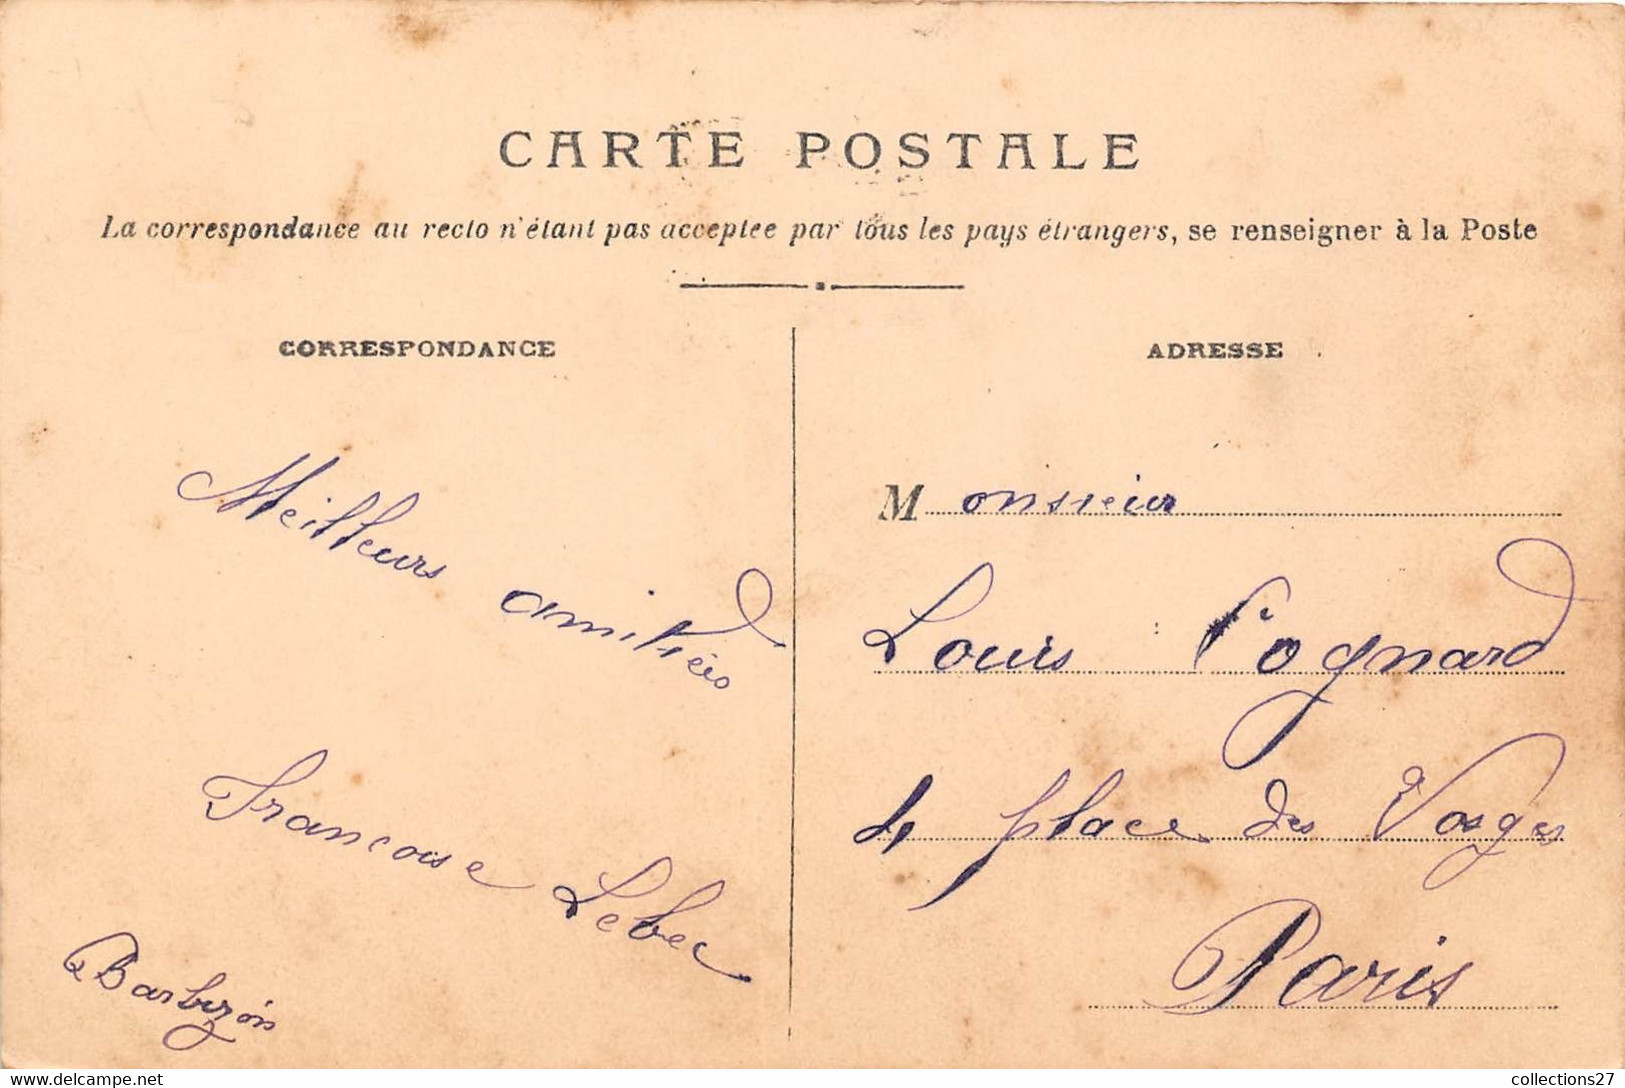 CARTE POSTALE
La correspondance au recto n'étant pas acceptee par tous les pays étrangers, se renseigner à la Poste
CORRESPONDANCE
Meilleurs amitiés
Francoise Lebec
Barbizon
ADRESSE
Monsieur
Louis Cognard
4 place des Vosges
Paris
collections27